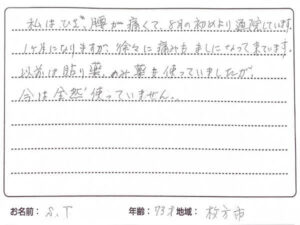 私はひざ、腰が痛くて、8月の初めより通院しています。
1ヶ月になりますが、徐々に痛みもましになって来ています。
以前は貼り薬、のみ薬を使っていましたが、
今は全然使っていません。
お名前： S.T 年齢： 73才 地域： 枚方市